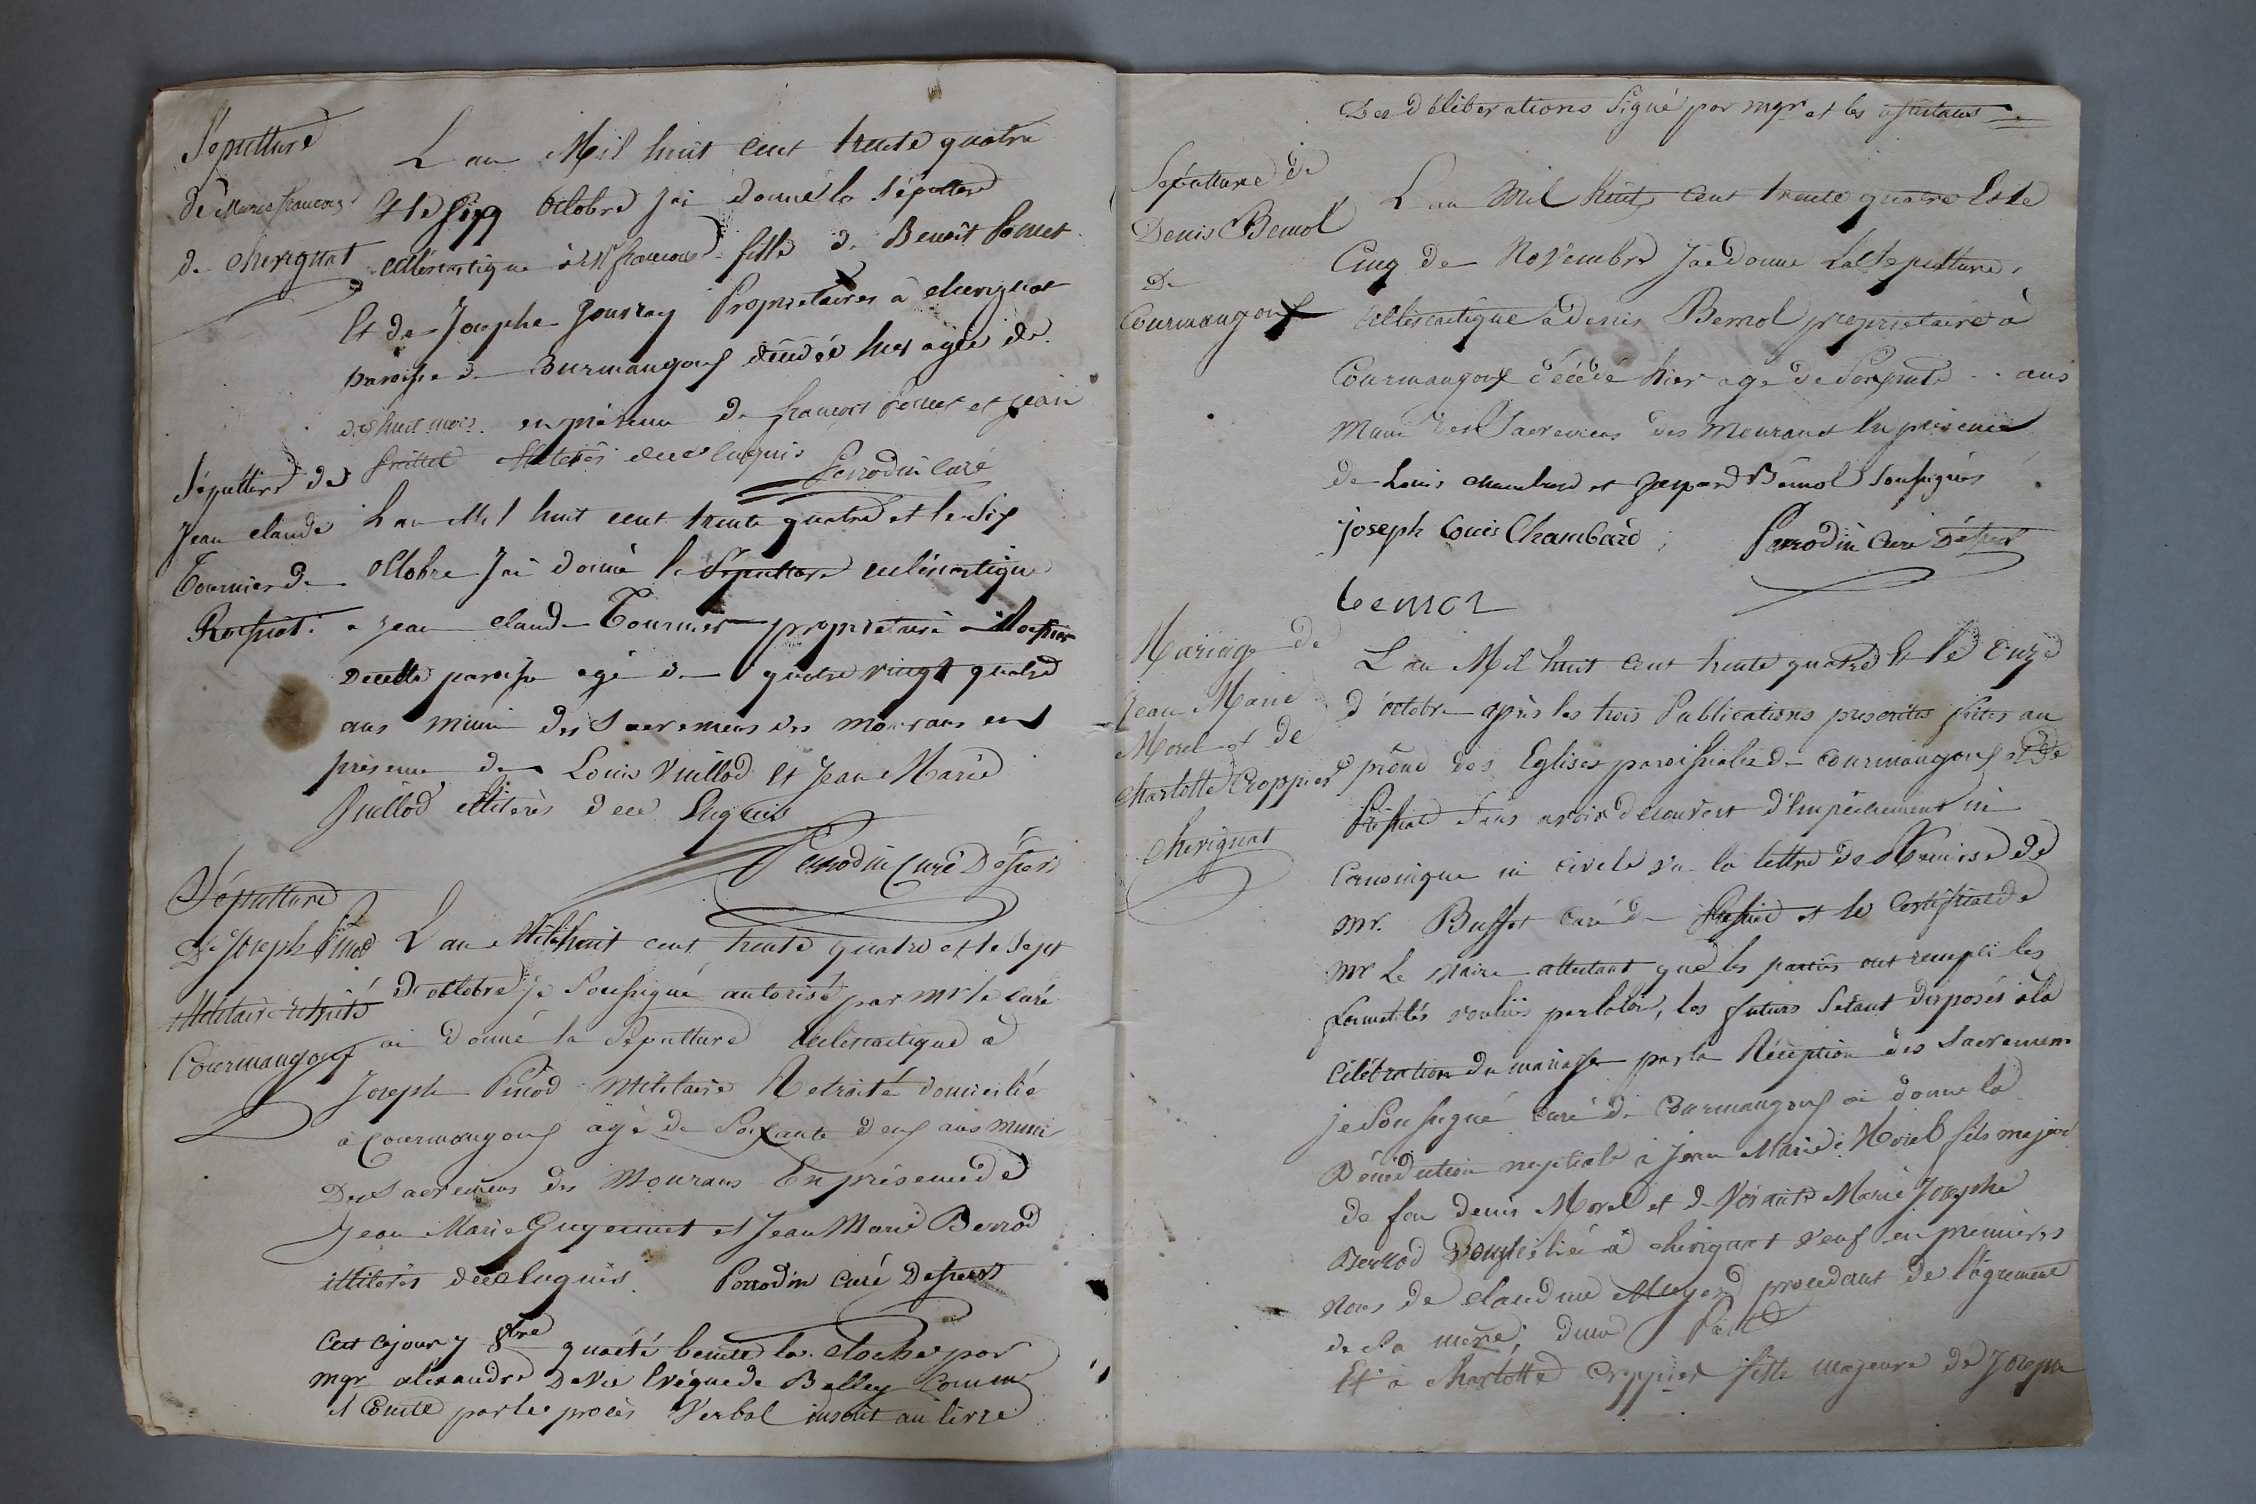 Sépulture
de Marie françoise
de cherignat
L'an Mil huit cent trente quatre
Et le six octobre jai donné la sépulture
eclésiastique à Me françoise fille de Benoît
Et de Josephe Propriétaires à cherignat
paroisse de Courmangoux décédée hier agée de
dixhuit mois en présence de françois et jean
illiterés de ce enquis
Perrodin curé
Sépulture de
Jean claude
Tournier de
Rosssiat
L'an Mil huit cent trente quatre et le Six
octobre Jai donné la Sepulture eclésiastique
a Jean claude Tournier propriétaire a
De cette paroisse agé de quatre vingt quatre
ans muni des Sacremens des mourans en
présence de Louis Vuillod Et Jean Marie
Vuillod illiterés de ce Enquis
Perrodin Curé Désserv
Sépulture
De Joseph Pinod
Militaire retraité
Courmangoux
L'an Mil huit cent trente quatre et le sept
D'octobre je Soussigné autorisé par mr le curé
ai Donné la Sépulture eclésiastique à
Joseph Pinod Militaire Retraité domicilié
à Courmangoux agé de Soixante deux ans muni
Des Sacremens des Mourans En présence de
Jean Marie Guyennet et Jean Marie Berrod
illiterés de ce Enquis. Perrodin curé Desserv
Cest cejour 7 8bre qua été benite la cloche par
mgr alexandre Devie Evéque de Belley Comme
il Conste par le procès Verbal inscrit au livre
Des déliberations Signé par mgr et les assistans
Sépulture de
Denis Bernol
De
Courmangoux
L'an Mil huit cent trente quatre Et le
Cinq de Novembre J'ai donné La Sepulture
eclésiastique à Denis Bernol propriétaire à
Courmangoux décédé hier agé de Soixante .. ans
Muni Des Sacremens des Mourans En présence
de Louis chambard et Gaspard Bernol Soussignés
joseph Louis Chambard Perrodin Curé Désserv
bernol
Mariage de
Jean Marie
Morel et de
charlotte Croppier
cherignat
L'an Mil huit cent trente quatre Et le Onze
d'octobre après les trois Publications prescrites faites au
prône des Eglises paroissiales de Courmangoux et de
Sans avoir découvert d'Empêchement ni
Canonique ni civile vu la lettre de Remise de
mr. Buffet curé de et le Certificat de
mr Le Maire attestant que les parties ont rempli les
formalités voulues par la loi, les futurs Setant disposés à la
Célébration du mariage par la Réception des Sacremens
je Soussigné curé de Courmangoux ai donné la
Bénédiction nuptiale à Jean Marie Morel fils majeur
de feu denis Morel et de vivante Marie Josephe
Berrod Domicilié à cherignat veuf en premières
noces de claudine procedant de l'agrement
de Sa mère, d'une Part
Et à charlotte croppier fille majeure de Joseph